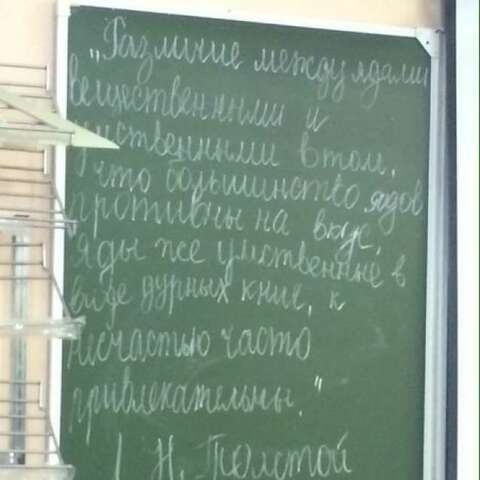 "Различие между ядами
вещественными и
умственными в том,
что большинство ядов
противны на вкус,
яды же умственные в
виде дурных книг, к
несчастью часто
привлекательны."
Л Н. Толстой